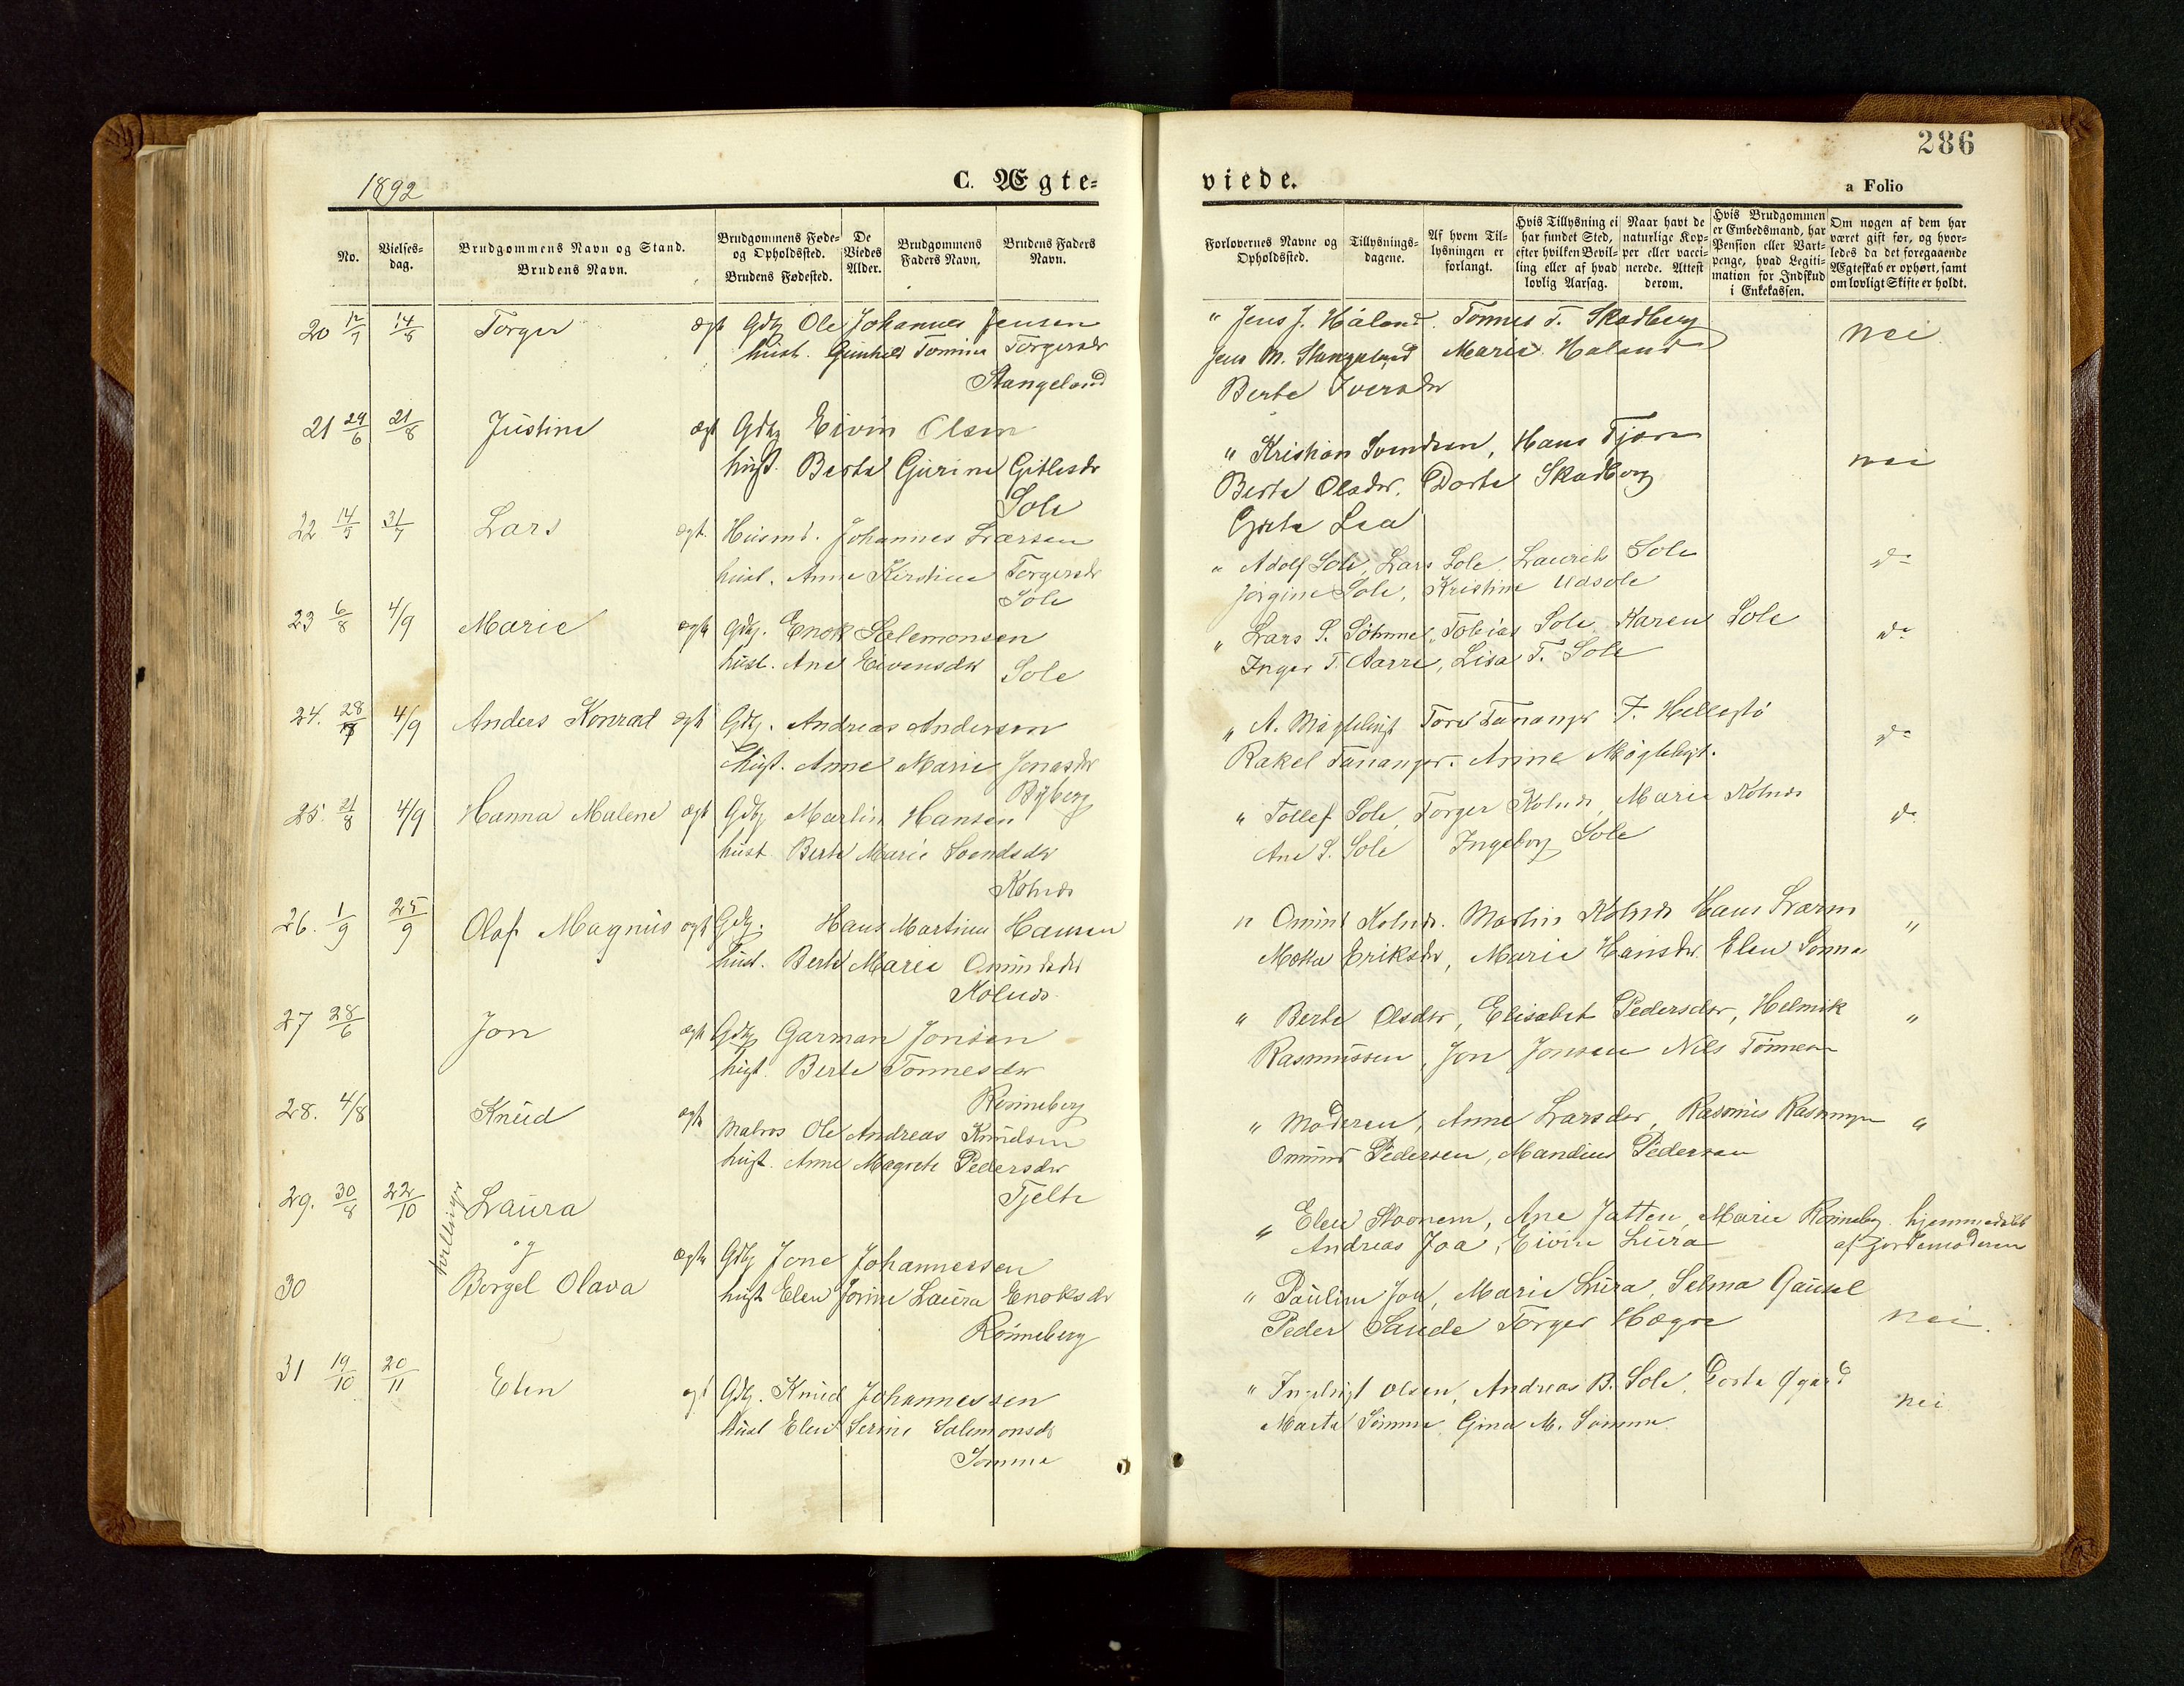 286
1892
C. Ægte-
viede.
a Folio
No.
Vielses-
dag.
Brudgommens Navn og Stand.
Brudens Navn.
Brudgommens Føde-
og Opholdssted.
Brudens Fødested.
De
Viedes
Alder.
Brudgommens
Faders Navn.
Brudens Faders
Navn.
Forlovernes Navne og
Opholdssted.
Tillysnings-
dagene.
Af hvem Til-
lysningen er
forlangt.
Hvis Tillysning ei
har fundet Sted,
efter hvilken Bevil-
ling eller af hvad
lovlig Aarsag.
Naar havt de
naturlige Kop-
per eller vacci-
nerede. Attest
derom.
Hvis Brudgommen
er Embedsmand, har
Pension eller Vart-
penge, hvad Legiti-
mation for Indskud
i Enkekassen.
Om nogen af dem har
været gift før, og hvor-
ledes da det foregaaende
Ægteskab er ophørt, samt
om lovligt Skifte er holdt.
20 12/7 14/8 Torger ægt Gdbg Ole Johannes Jensen
hust. Gunhild Tomine Torgersdr
Stangeland
" Jens J. Håland. Tønnes T. Skadberg nei
Jens M. Stangeland Marie Haland
Berte Iversdr
21 29/6 21/8 Justine ægt Gdbg Eivin Olsen
hust. Berte Gurine Gitlesdr
Sole
" Kristian Svendsen, Hans Tjøra nei
Berte Olsdr. Dorte Skadberg
Grete Lea
22 14/5 31/7 Lars ægt. Husmd. Johannes Larsen
hust. Anne Kirstine Torgersdr
Sole
" Adolf Sole, Lars Sole, Laurits Sole do
Jørgine Sole, Kristine Udsole
23 6/8 4/9 Marie ægte Gdbg. Enok Salemonsen
hust. Ane Eivensdr Sole
" Lars S. Sömme, Tobias Sole, Karen Sole do
Inger T. Aarre, Lisa T. Sole
24. 28/7 4/9 Anders Konrad ægte Gdbg. Andreas Andersen
hust. Anne Marie Jonasdr
Byberg
" A. Møgleligt Tore Tananger T. Hellestø do
Rakel Tananger. Anne Møgleligt.
25. 21/8 4/9 Hanna Malene ægt Gdbg Martin Hansen
hust Berte Marie Svendsdr
Kolnes
" Tollef Sole, Torger Kolnes, Marie Kolnes do
Ane S. Sole Ingeborg Sole
26. 1/9 25/9 Olaf Magnus ægt Gdbg. Hans Martinus Hansen
hust. Berte Marie Omundsdr
Kolnes
" Omund Kolnes. Martin Kolnes Hans "
Erikdr, Marie Hansdr. Elen Sømme
27 28/6 Jon ægt Gdbg Garman Jonsen
hust. Berte Tönnesdr
Rönneberg
" Berte Olsdtr, Elisabet Pedersdtr, Helmik "
Rasmussen, Jon Jonsen Nils Tönnesen
28. 4/8 Knud ægte Matros Ole Andreas Knudsen
hust. Anne Magrete Pedersdr
Tjelte
" Moderen, Anne Larsdtr, Rasmus Rasmusen "
Omund Pedersen, Mandius Pedersen
29. 30/8 22/10 tvillinger Laura
og
" Elen Ane Jåtten, Marie Rönneberg. hjemmedøbt
Andreas Joa, Eivin Lura af Jordemoderen
30 Borgel Olava ægte Gdbg Jone Johannessen
hust Elen Jörine Laura Enoksdr
Rönneberg
" Pauline Joa, Marie Lura, Selma Gausel
Peder Sande Torger Hogre nei.
31 19/10 20/11 Elen ægt Gdbg. Knud Johannessen
hust Elen Serine Salemonsdr
Sømme
" Ingebrigt Olsen, Andreas B. Sole, Dorte Øgard nei
Marta Sömme Gina M. Sömme